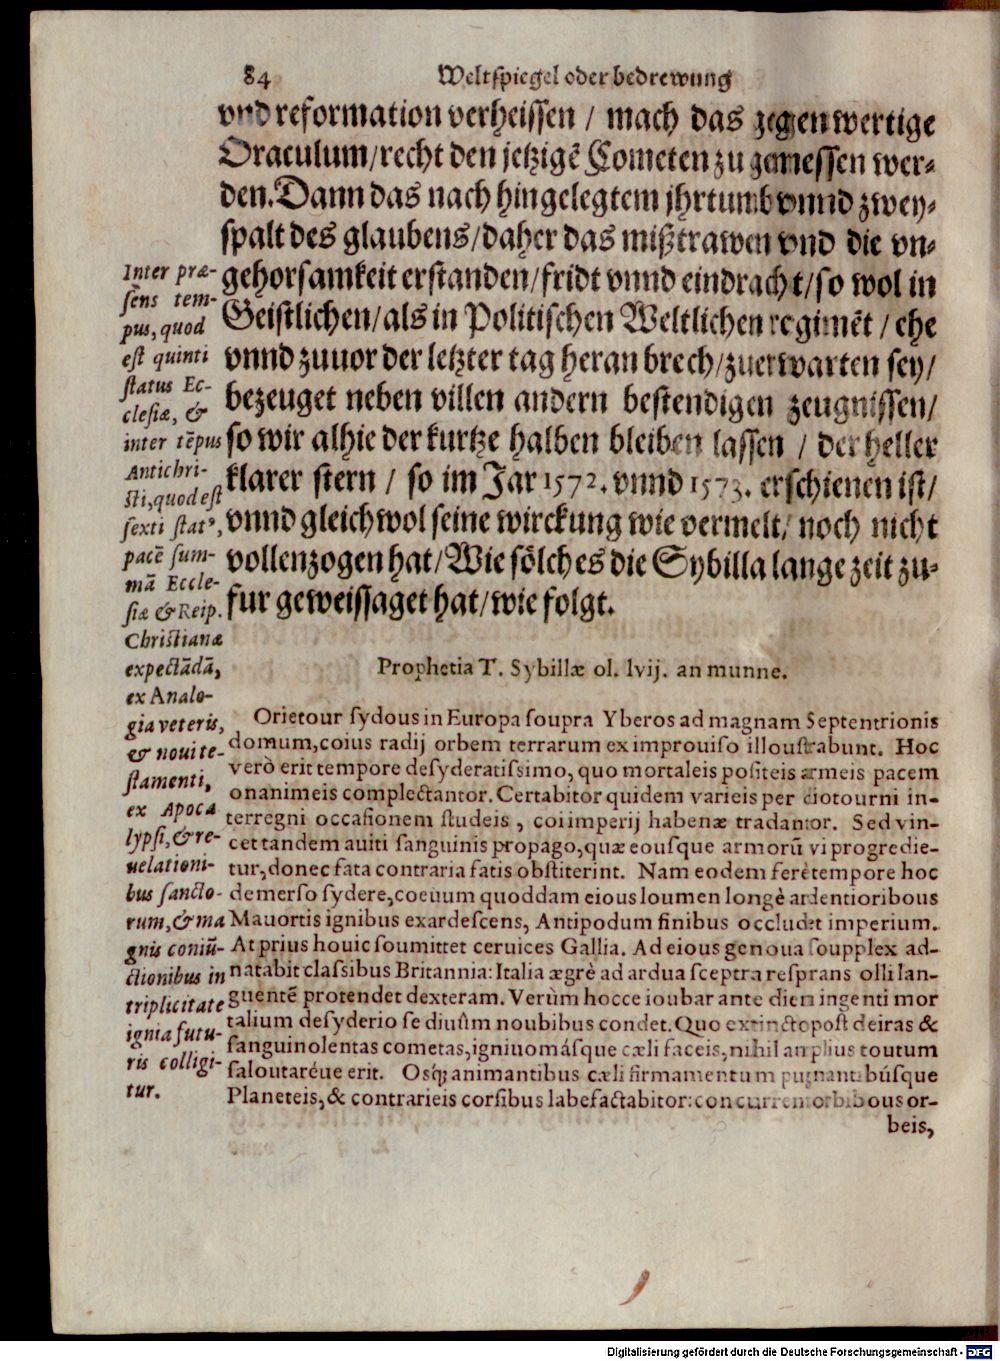 84
Weltspiegel oder bedrewung
vnd reformation verheissen / mach das gegenwertige
Oraculum/recht den jetzigē Cometen zu gemessen wer-
den. Dann das nach hingelegtem jhrtumb vnnd zwey-
spalt des glaubens/daher das mißtrawen vnd die vn-
gehorsamkeit erstanden/fridt vnnd eindracht/so wol in
Geistlichen/als in Politischen Weltlichen regimēt / ehe
vnnd zuuor der letzter tag heran brech/zuerwarten sey/
bezeuget neben villen andern bestendigen zeugnissen/
so wir alhie der kurtze halben bleiben lassen / der heller
klarer stern / so im Jar 1572. vnnd 1573. erschienen ist/
vnnd gleichwol seine wirckung wie vermelt/ noch nicht
vollenzogen hat/Wie sölches die Sybilla lange zeit zu-
fur geweissaget hat/wie folgt.
Inter præ-
sens tem-
pus, quod
est quinti
status Ec-
clesiæ, &
inter tēpus
Antichri-
sti, quod est
sexti statꝰ,
pacē sum-
mā Eccle-
siæ & Reip.
Christianæ
expectādā,
ex Analo-
gia veteris,
& noui te-
stamenti,
ex Apoca
lypsi, & re-
uelationi-
bus sancto-
rum, & ma
gnis coniū-
ctionibus in
triplicitate
ignia futu-
ris colligi-
tur.
Prophetia T. Sybillæ ol. lvij. an munne.
Orietour sydous in Europa soupra Yberos ad magnam Septentrionis
domum, coius radij orbem terrarum ex improuiso illoustrabunt. Hoc
verò erit tempore desyderatissimo, quo mortaleis positeis armeis pacem
onanimeis complectantor. Certabitor quidem varieis per ciotourni in-
terregni occasionem studeis , coi imperij habenæ tradantor. Sed vin-
cet tandem auiti sanguinis propago, quæ eousque armorū vi progredie-
tur, donec fata contraria fatis obstiterint. Nam eodem ferè tempore hoc
demerso sydere, coeuum quoddam eious loumen longè ardentioribous
Mauortis ignibus exardescens, Antipodum finibus occludet imperium.
At prius houic soumittet ceruices Gallia. Ad eious genoua soupplex ad-
natabit classibus Britannia: Italia ægrè ad ardua sceptra resprans olli lan-
guentē protendet dexteram. Verùm hocce ioubar ante diem ingenti mor
talium desyderio se diuûm noubibus condet. Quo extincto post deiras &
sanguinolentas cometas, igniuomásque cæli faceis, nihil amplius toutum
saloutaréue erit. Osq; animantibus cæli firmamentum pugnantibúsque
Planeteis, & contrarieis corsibus labefactabitor: concurrent orbibous or-
beis,
Digitalisierung gefördert durch die Deutsche Forschungsgemeinschaft - DFG